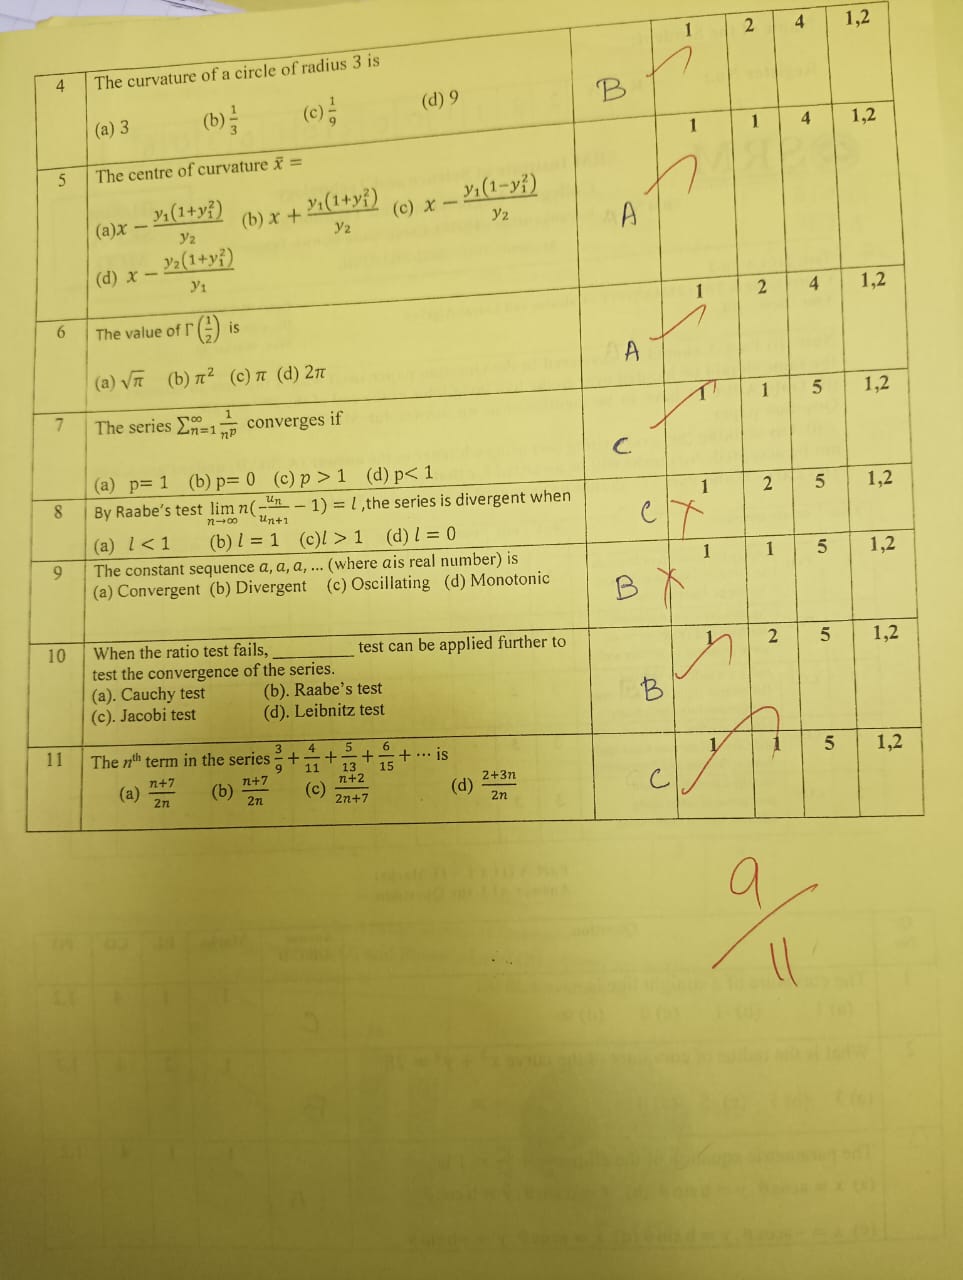 4 The curvature of a circle of radius 3 is 1 2 4 1,2
(a) 3 (b) 1/3 (c) 1/9 (d) 9 B
5 The centre of curvature x̄ = 1 1 4 1,2
(a)x − y₁(1+y₁²)/y₂ (b) x + y₁(1+y₁²)/y₂ (c) x − y₁(1−y₁²)/y₂ A
(d) x − y₂(1+y₁²)/y₁
6 The value of Γ(1/2) is 1 2 4 1,2
(a) √π (b) π² (c) π (d) 2π A
7 The series ∑_{n=1}^{∞} 1/nᵖ converges if 1 1 5 1,2
(a) p= 1 (b) p= 0 (c) p > 1 (d) p< 1 C
8 By Raabe's test lim_{n→∞} n(uₙ/uₙ₊₁ − 1) = l ,the series is divergent when 1 2 5 1,2
(a) l < 1 (b) l = 1 (c)l > 1 (d) l = 0 C
9 The constant sequence a, a, a, ... (where ais real number) is 1 1 5 1,2
(a) Convergent (b) Divergent (c) Oscillating (d) Monotonic B
10 When the ratio test fails, _________ test can be applied further to 1 2 5 1,2
test the convergence of the series.
(a). Cauchy test (b). Raabe's test B
(c). Jacobi test (d). Leibnitz test
11 The nᵗʰ term in the series 3/9 + 4/11 + 5/13 + 6/15 + ⋯ is 1 1 5 1,2
(a) n+7/2n (b) n+7/2n (c) n+2/2n+7 (d) 2+3n/2n C
9/11